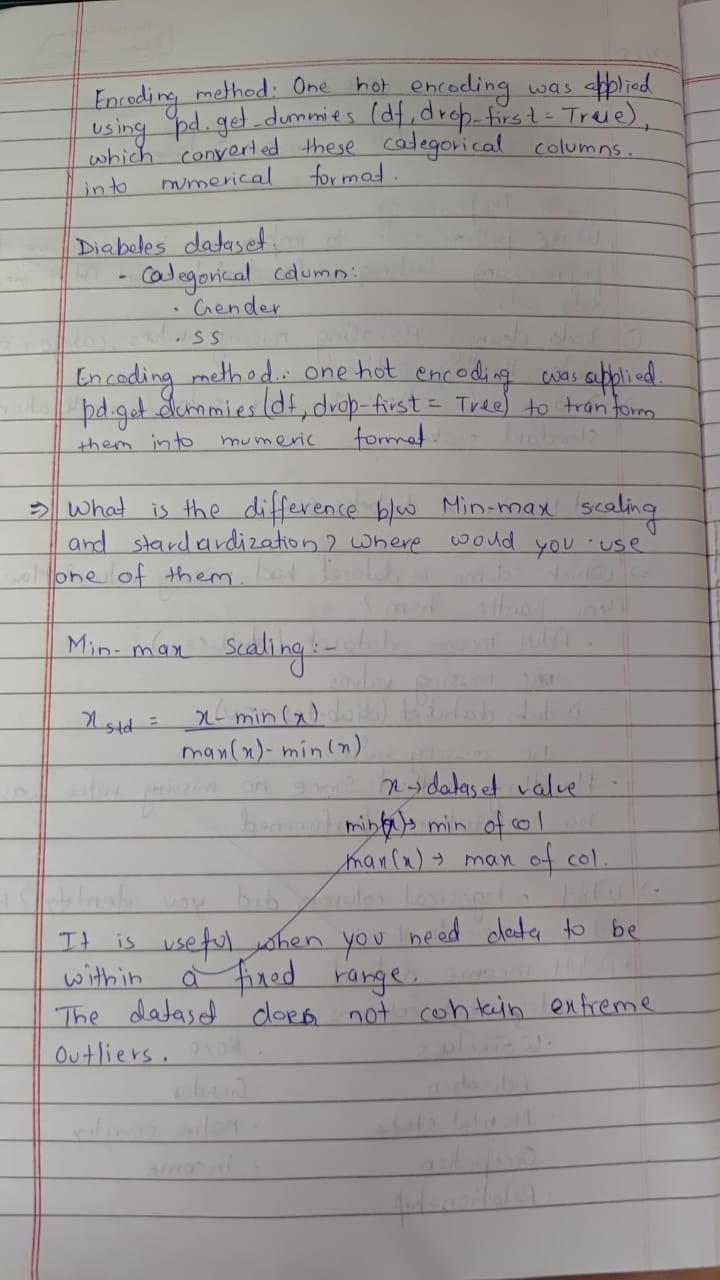 Encoding method: One hot encoding was applied
using pd.get_dummies (df, drop_first = True),
which converted these categorical columns.
into numerical format.
Diabetes dataset.
- Categorical column:
. Gender
. SS
Encoding method.: one hot encoding was applied.
pd.get dummies (df, drop-first = True) to tranform
them into numeric format.
⇒ What is the difference b/w Min-max scaling
and stardardization? where would you use
one of them.
Min-max scaling:-
x std = x - min(x)
max(x) - min(x)
x → dataset value
min(x) → min of col
max(x) → max of col.
It is useful when you need data to be
within a fixed range.
The dataset does not contain extreme
outliers.